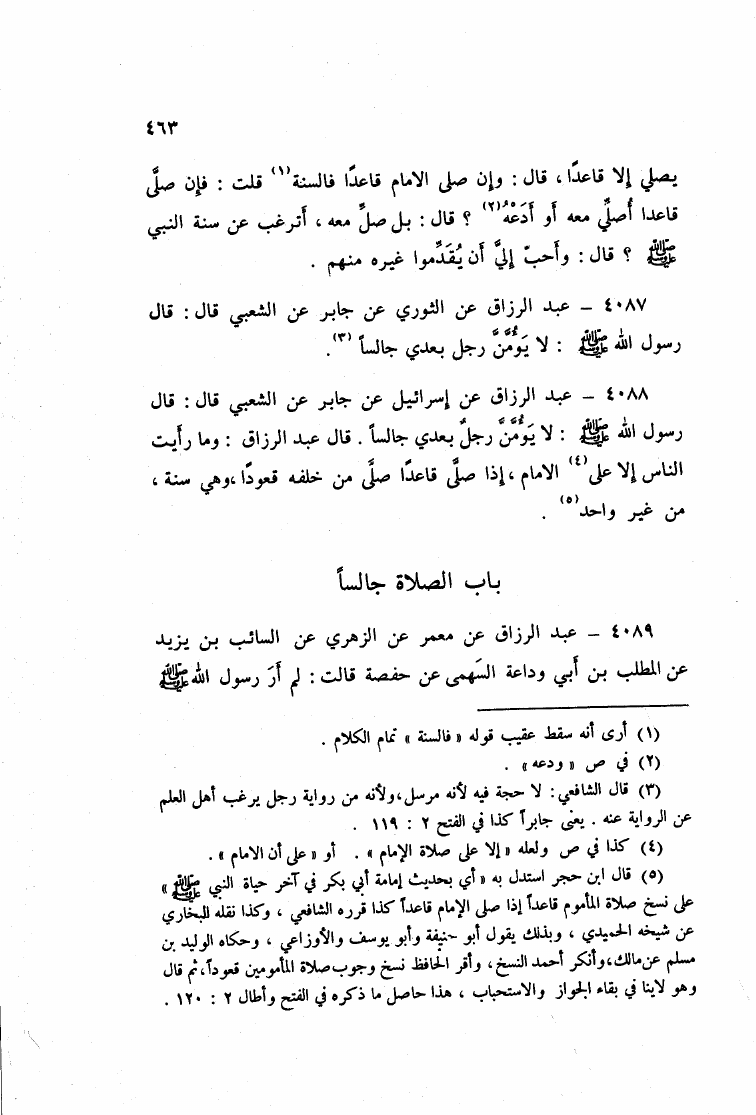 ٤٦٣
يصلي إلا قاعدًا ، قال : وإن صلى الامام قاعدًا فالسنة(١) قلت : فإن صلَّى
قاعدا أُصلِّي معه أو أَدَعْهُ(٢) ؟ قال : بل صلِّ معه ، أترغب عن سنة النبي
ﷺ ؟ قال : وأحبّ إليَّ أن يُقَدِّموا غيره منهم .
٤٠٨٧ – عبد الرزاق عن الثوري عن جابر عن الشعبي قال : قال
رسول الله ﷺ : لا يَؤُمَّنَّ رجل بعدي جالساً (٣).
٤٠٨٨ – عبد الرزاق عن إسرائيل عن جابر عن الشعبي قال : قال
رسول الله ﷺ : لا يَؤُمَّنَّ رجلٌ بعدي جالساً . قال عبد الرزاق : وما رأيت
الناس إلا على(٤) الامام ، إذا صلَّى قاعدًا صلَّى من خلفه قعودًا ، وهي سنة ،
من غير واحد(٥) .
باب الصلاة جالساً
٤٠٨٩ – عبد الرزاق عن معمر عن الزهري عن السائب بن يزيد
عن المطلب بن أبي وداعة السَهمى عن حفصة قالت : لم أرَ رسول الله ﷺ
(١) أرى أنه سقط عقيب قوله « فالسنة » تمام الكلام .
(٢) في ص « ودعه » .
(٣) قال الشافعي : لا حجة فيه لأنه مرسل ، ولأنه من رواية رجل يرغب أهل العلم
عن الرواية عنه . يعنى جابراً كذا في الفتح ٢ : ١١٩ .
(٤) كذا في ص ولعله « إلا على صلاة الإمام » . أو « على أن الامام » .
(٥) قال ابن حجر استدل به « أي بحديث إمامة أبي بكر في آخر حياة النبي ﷺ »
على نسخ صلاة المأموم قاعداً إذا صلى الإمام قاعداً كذا قرره الشافعي ، وكذا نقله البخاري
عن شيخه الحميدي ، وبذلك يقول أبو حنيفة وأبو يوسف والأوزاعي ، وحكاه الوليد بن
مسلم عن مالك ، وأنكر أحمد النسخ ، وأقر الحافظ نسخ وجوب صلاة المأمومين قعوداً ، ثم قال
وهو لاينا في بقاء الجواز والاستحباب ، هذا حاصل ما ذكره في الفتح وأطال ٢ : ١٢٠ .